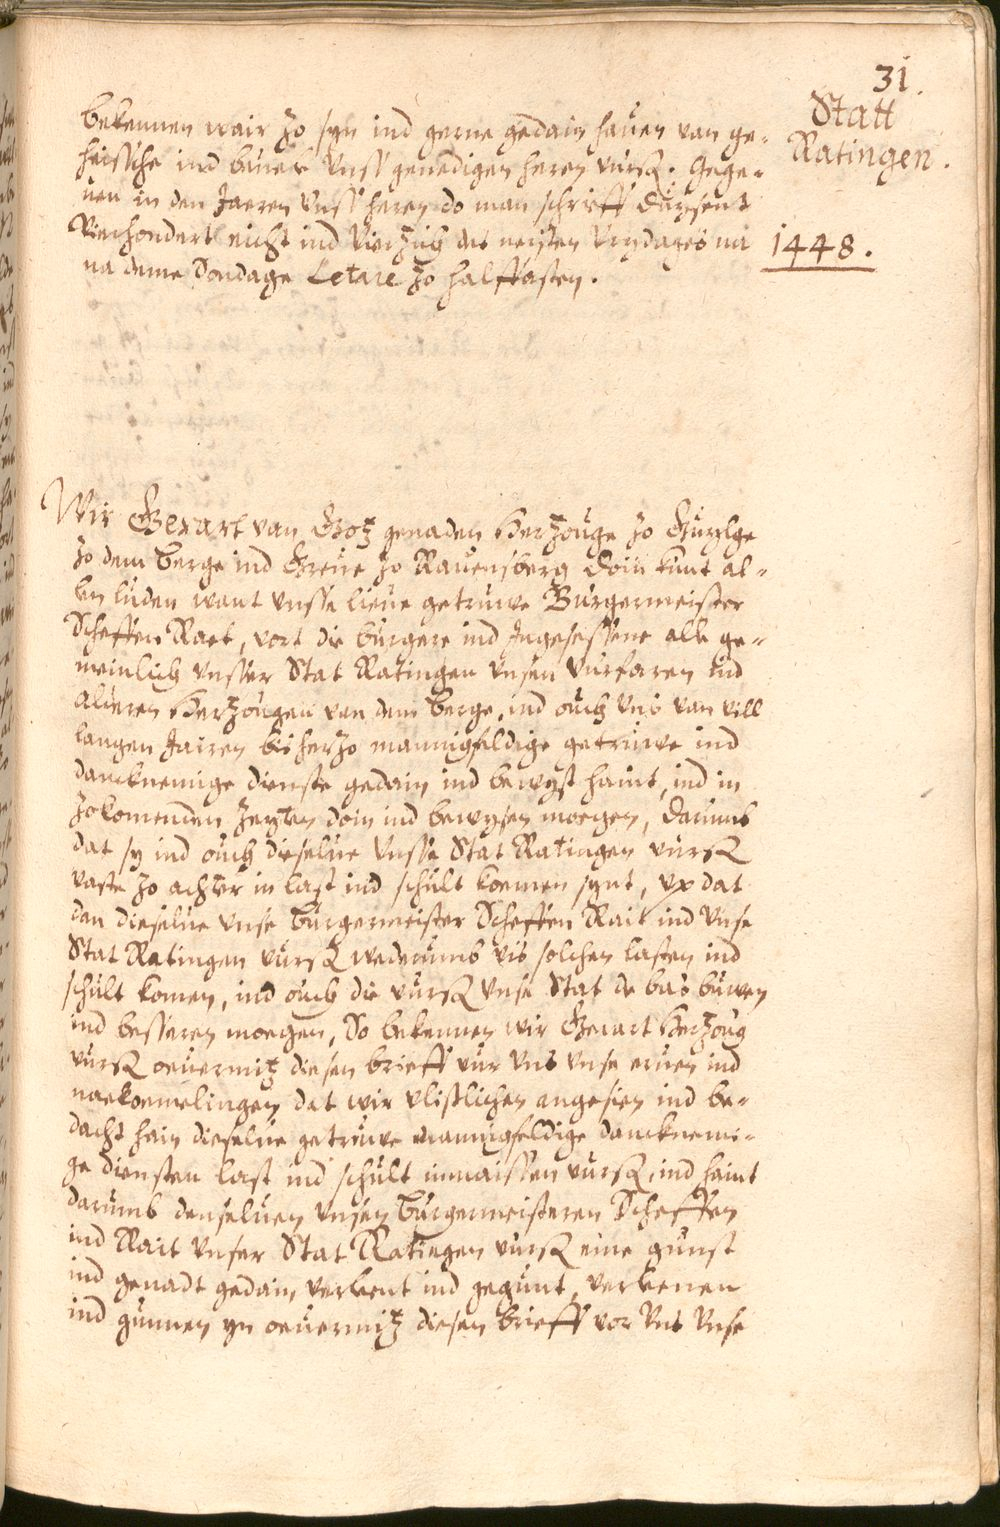 31.
Statt
Ratingen.
bekennen wair zo syn ind gerne gedain hauen van ge-
heissche ind beuele Unss genedigen heren vursz. Gege-
uen in den Jaeren Unss heren do man schrieff duysent
Vierhondert eicht ind Viertzich des neisten Vrydages na
1448.
na deme Sondage Letare zo halffasten.
Wir Gerart van Gotz genaden Hertzouge zo Guylge
zo dem Berge ind Greue zo Rauensberg Doin kunt al-
len luden want Unsse lieue getruwe Burgermeister
Scheffen Raet, vort die burgere ind Ingesessene alle ge-
meinlich Unsser Stat Ratingen Unsen Vurfaren ind
Alderen Hertzougen van dem Berge, ind ouch Uns van vill
langen Jairen bis herzo mannigfeldige getruwe ind
dancknemige dienste gedain ind bewyst haint, ind in
zokomenden Zeyten doin ind bewysen moegen, Darumb
dat sy ind ouch dieselue Unsse Stat Ratingen vursz
vaste zo achter in last ind schult koemen synt, up dat
dan dieselue Unse Burgermeister Scheffen Rait ind Unse
Stat Ratingen vursz wederumb uis solchen lasten ind
schult komen, ind ouch die vursz Unse Stat de bas buwen
ind besseren moegen, So bekennen wir Gerart Hertzoug
vursz oeuermitz diesen brieff vur Uns Unse eruen ind
naekoemelingen dat wir vlislichen angesien ind be-
dacht hain dieselue getruwe mannigfeldige dancknemi-
ge diensten last ind schult inmaissen vursz, ind haint
darumb denseluen Unsen Burgermeisteren Scheffen
ind Rait Unser Stat Ratingen vursz eine gunst
ind genadt gedain verleent ind gegunt, verlenen
ind gunnen yn oeuermitz diesen brieff vor Uns Unse